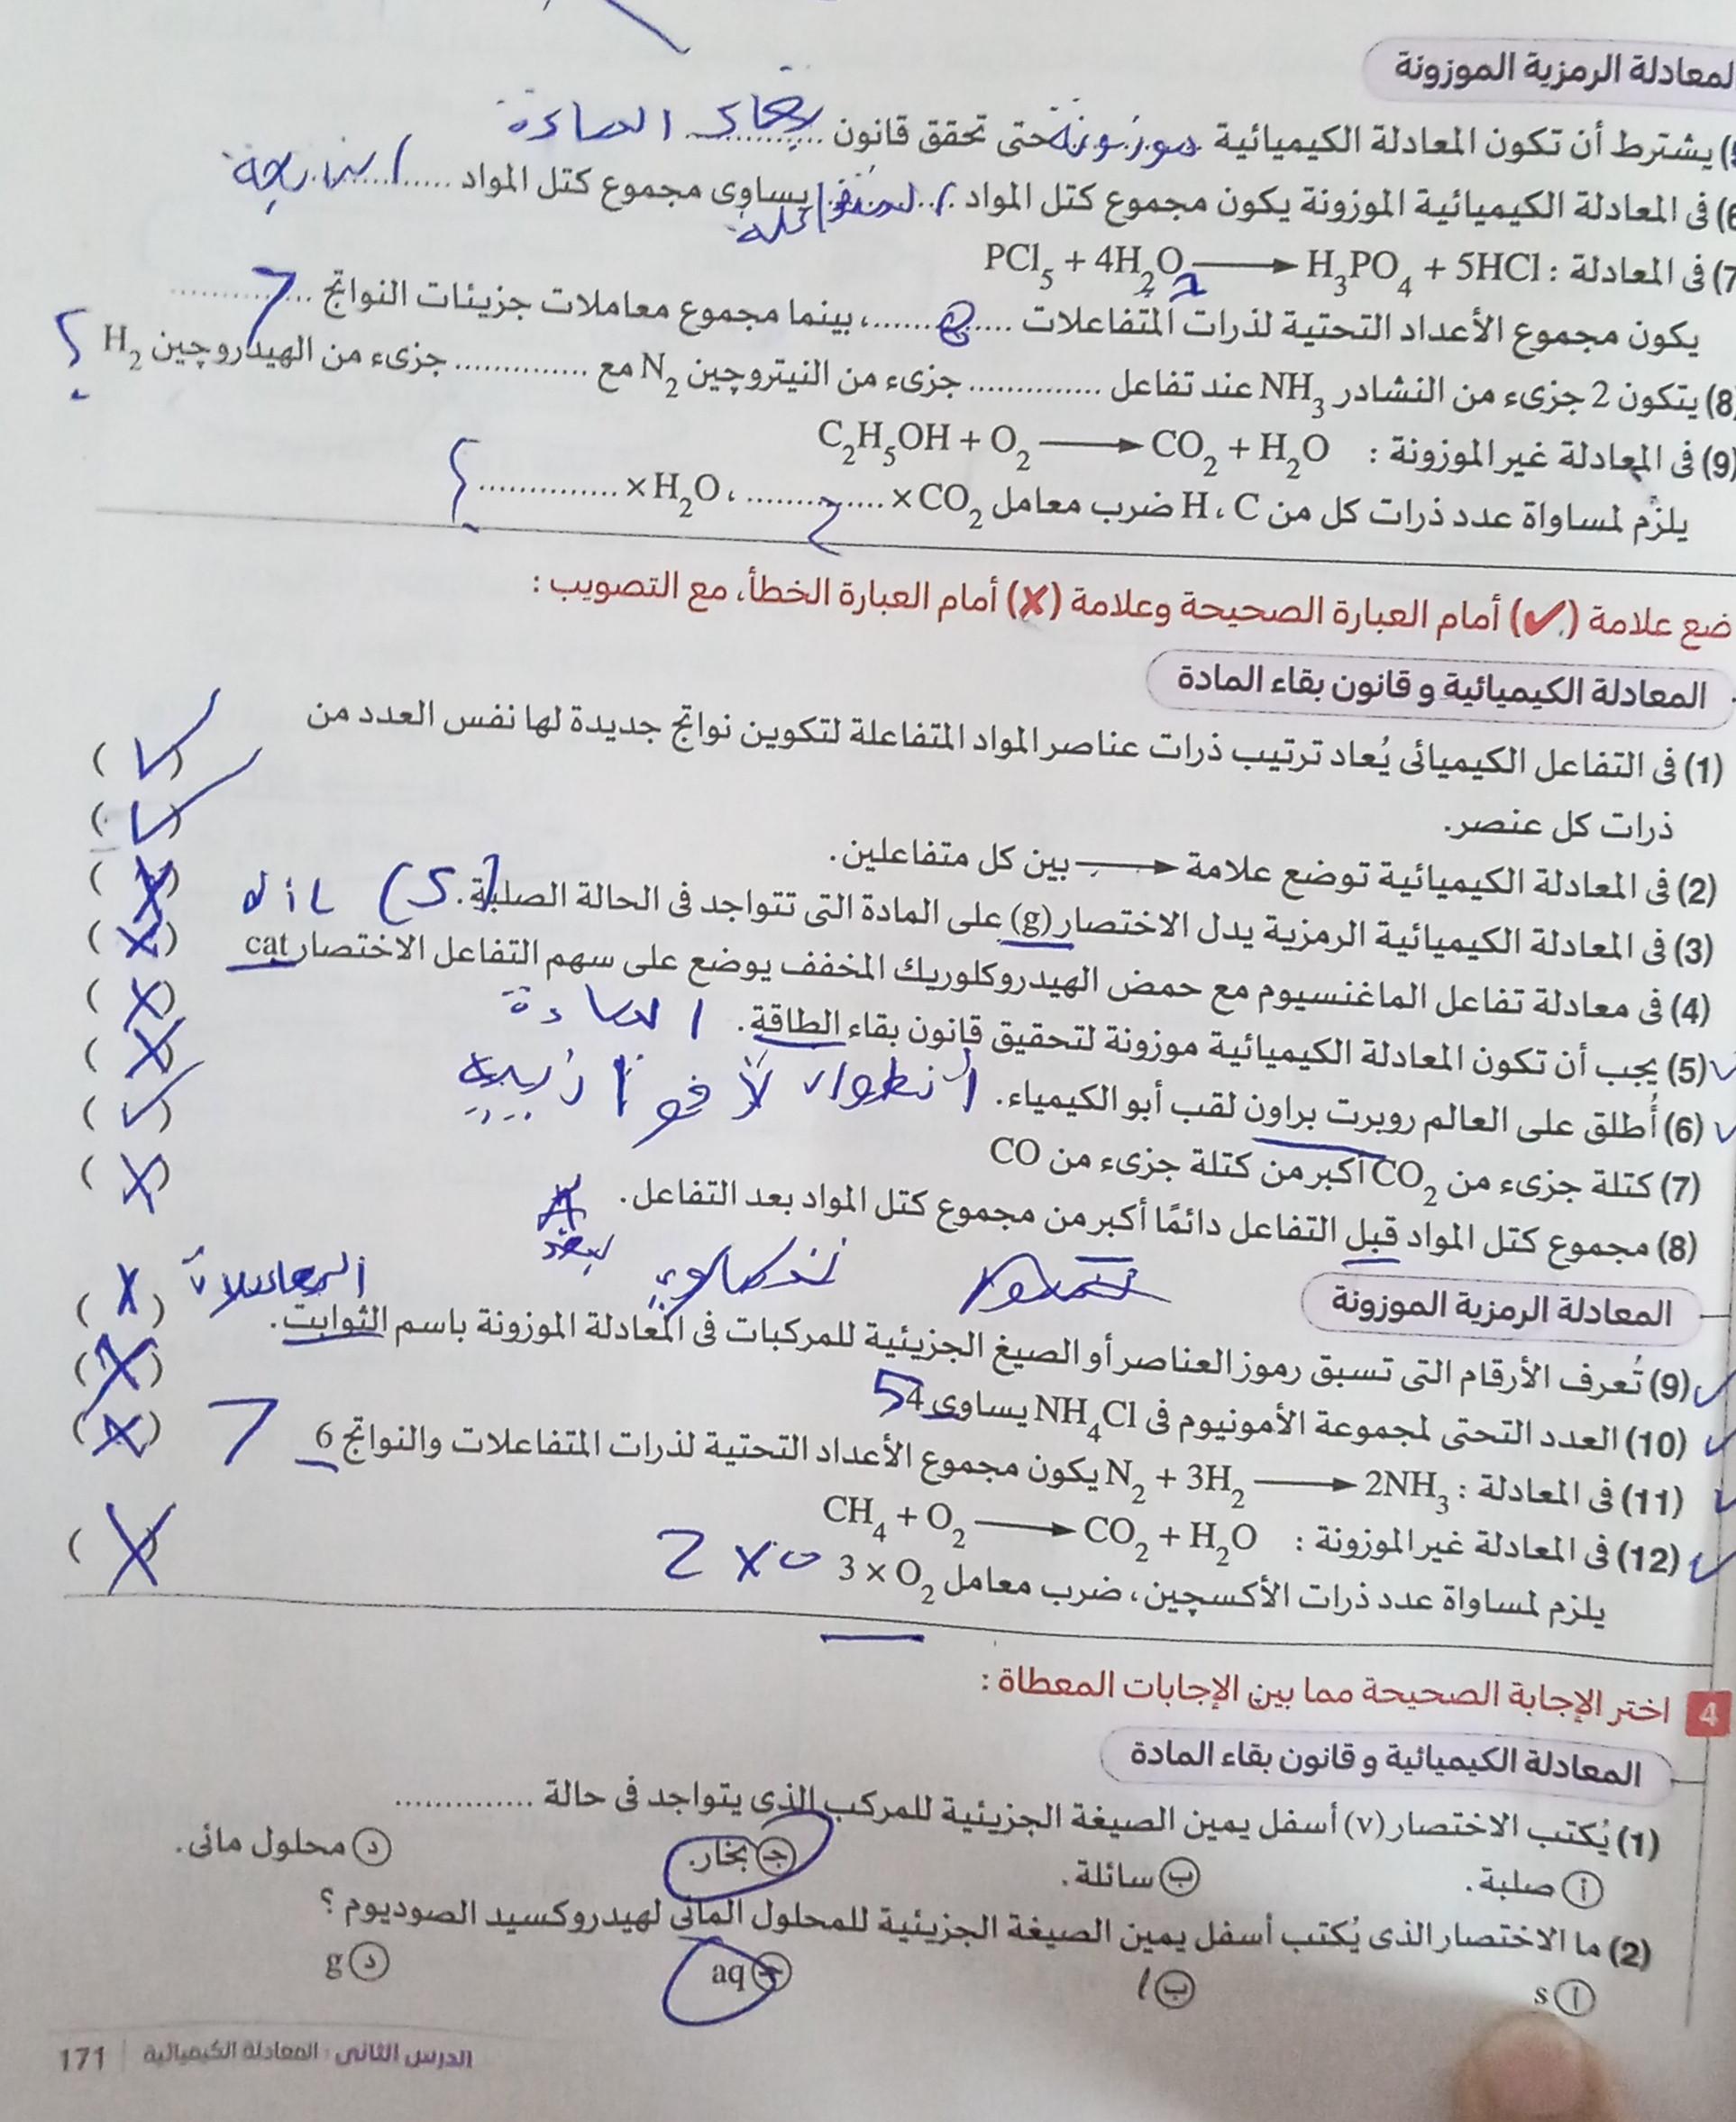 لمعادلة الرمزية الموزونة
) يشترط أن تكون المعادلة الكيميائية موزونة حتى تحقق قانون .......... بقاء المادة
(6) فى المعادلة الكيميائية الموزونة يكون مجموع كتل المواد .. المتفاعلة يساوى مجموع كتل المواد .......... الناتجة
(7) فى المعادلة : PCl₅ + 4H₂O ⟶ H₃PO₄ + 5HCl
يكون مجموع الأعداد التحتية لذرات المتفاعلات ..............، بينما مجموع معاملات جزيئات النواتج .............. 7
(8) يتكون 2 جزىء من النشادر NH₃ عند تفاعل .............. جزىء من النيتروچين N₂ مع .............. جزىء من الهيدروچين H₂ ؟
(9) فى المعادلة غير الموزونة : C₂H₅OH + O₂ ⟶ CO₂ + H₂O
يلزم لمساواة عدد ذرات كل من H ، C ضرب معامل CO₂ × .............. ، H₂O × ..............
ضع علامة (✔) أمام العبارة الصحيحة وعلامة (✘) أمام العبارة الخطأ، مع التصويب :
المعادلة الكيميائية و قانون بقاء المادة
(1) فى التفاعل الكيميائى يُعاد ترتيب ذرات عناصر المواد المتفاعلة لتكوين نواتج جديدة لها نفس العدد من
ذرات كل عنصر. (✓)
(2) فى المعادلة الكيميائية توضع علامة ⟶ بين كل متفاعلين. (✓)
(3) فى المعادلة الكيميائية الرمزية يدل الاختصار (g) على المادة التى تتواجد فى الحالة الصلبة. (S) (X)
(4) فى معادلة تفاعل الماغنسيوم مع حمض الهيدروكلوريك المخفف يوضع على سهم التفاعل الاختصار cat dil (X)
(5) يجب أن تكون المعادلة الكيميائية موزونة لتحقيق قانون بقاء الطاقة. المادة (X)
(6) أُطلق على العالم روبرت براون لقب أبو الكيمياء. انطوان لافوازييه (X)
(7) كتلة جزىء من CO₂ أكبر من كتلة جزىء من CO (✓)
(8) مجموع كتل المواد قبل التفاعل دائمًا أكبر من مجموع كتل المواد بعد التفاعل. (X)
بعد
المعادلة الرمزية الموزونة
(9) تُعرف الأرقام التى تسبق رموز العناصر أو الصيغ الجزيئية للمركبات فى المعادلة الموزونة باسم الثوابت. المعاملات (X)
(10) العدد التحتى لمجموعة الأمونيوم فى NH₄Cl يساوى 4 5 (X)
(11) فى المعادلة : N₂ + 3H₂ ⟶ 2NH₃ يكون مجموع الأعداد التحتية لذرات المتفاعلات والنواتج 6 7 (X)
(12) فى المعادلة غير الموزونة : CH₄ + O₂ ⟶ CO₂ + H₂O
يلزم لمساواة عدد ذرات الأكسچين، ضرب معامل O₂ × 3 2 X O (X)
4 اختر الإجابة الصحيحة مما بين الإجابات المعطاة :
المعادلة الكيميائية و قانون بقاء المادة
(1) يُكتب الاختصار (v) أسفل يمين الصيغة الجزيئية للمركب الذى يتواجد فى حالة ..............
أ صلبة. ب سائلة. ج بخار. د محلول مائى.
(2) ما الاختصار الذى يُكتب أسفل يمين الصيغة الجزيئية للمحلول المائى لهيدروكسيد الصوديوم ؟
أ s ب l ج aq د g
الدرس الثانى : المعادلة الكيميائية | 171